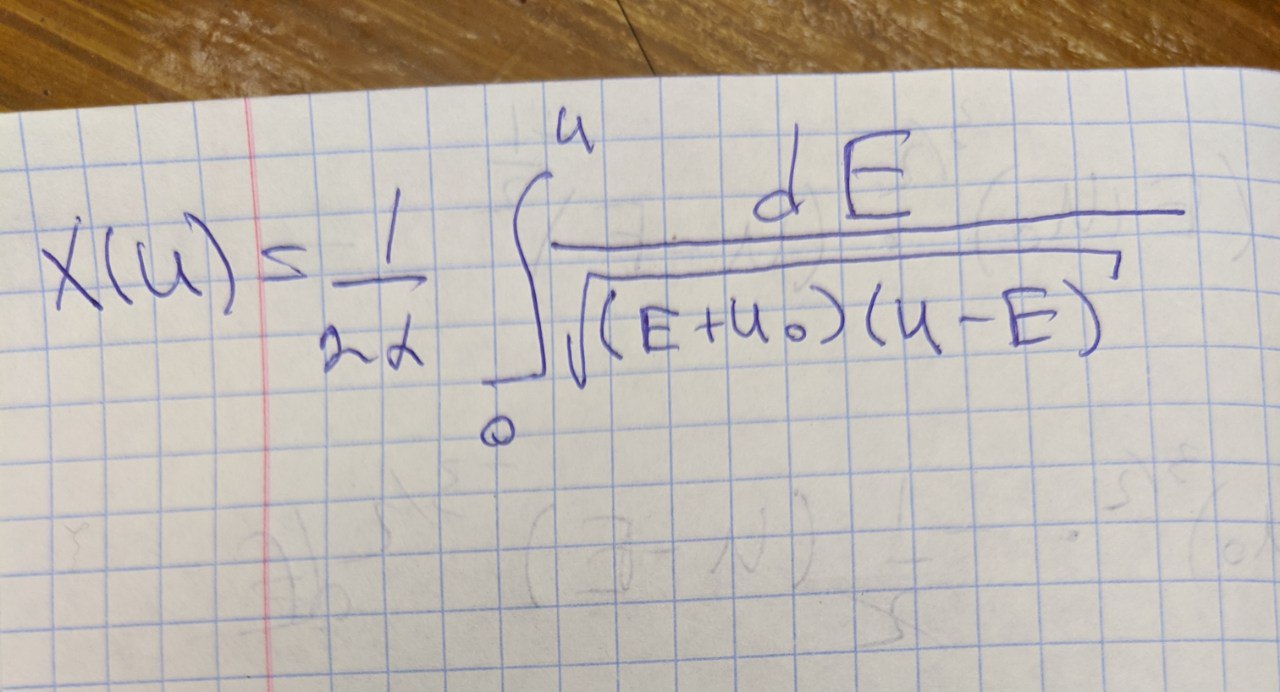 x(u) = \frac{1}{2α} \int_0^u \frac{dE}{\sqrt{(E+u_0)(u-E)}}